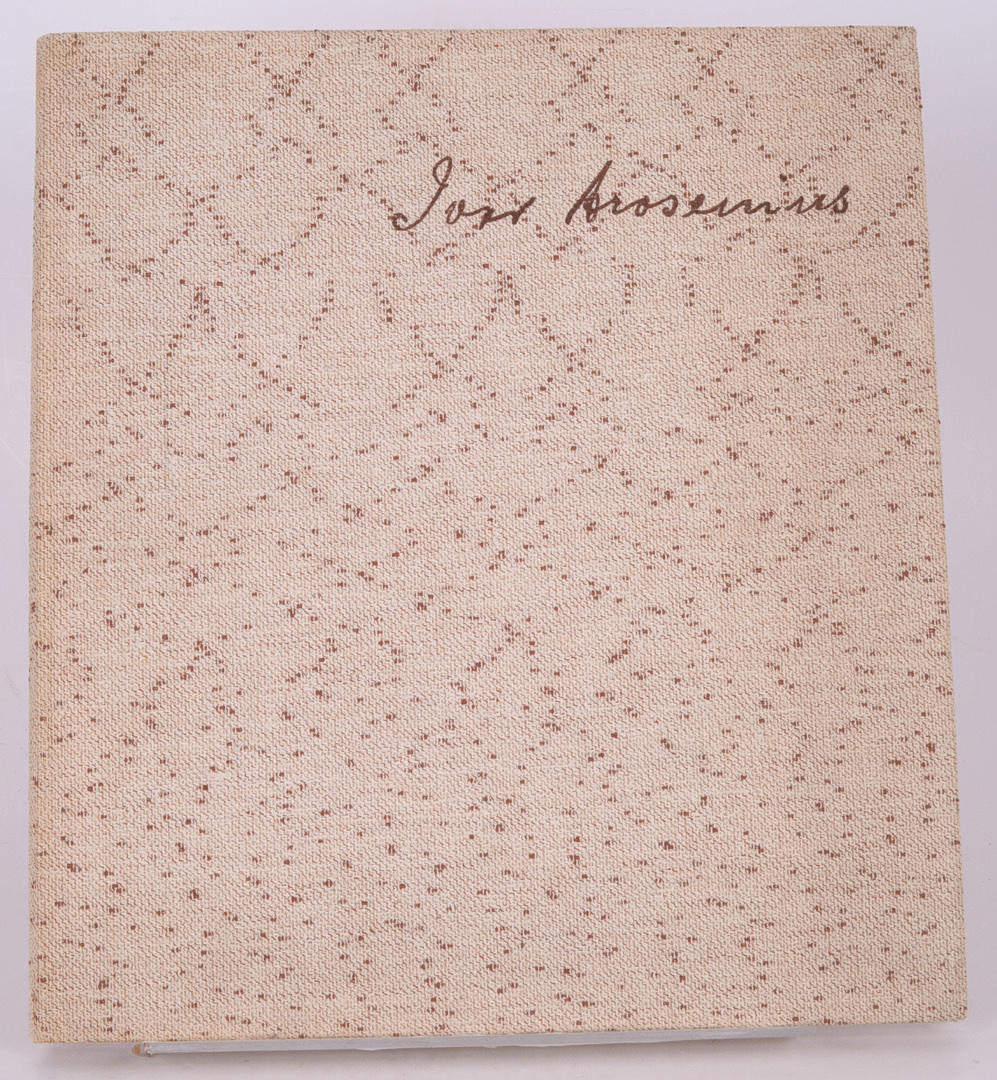 Ivar Arosenius